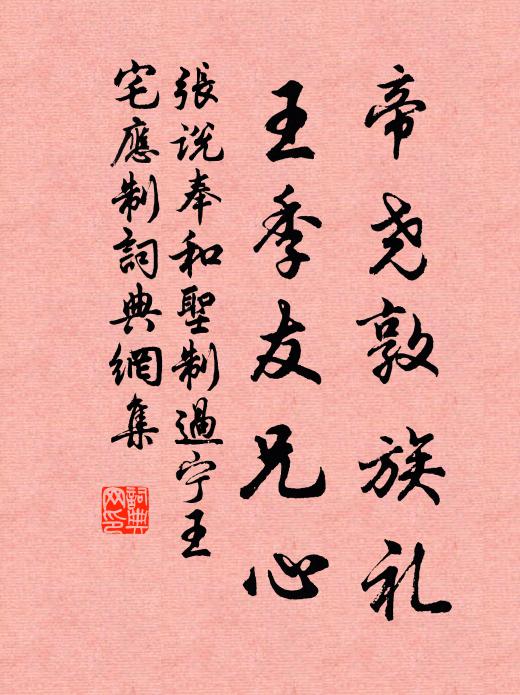 帝尧敦族礼
王季友兄心
張说奉和聖制過宁王
宅應制詞典網集
詞典网印